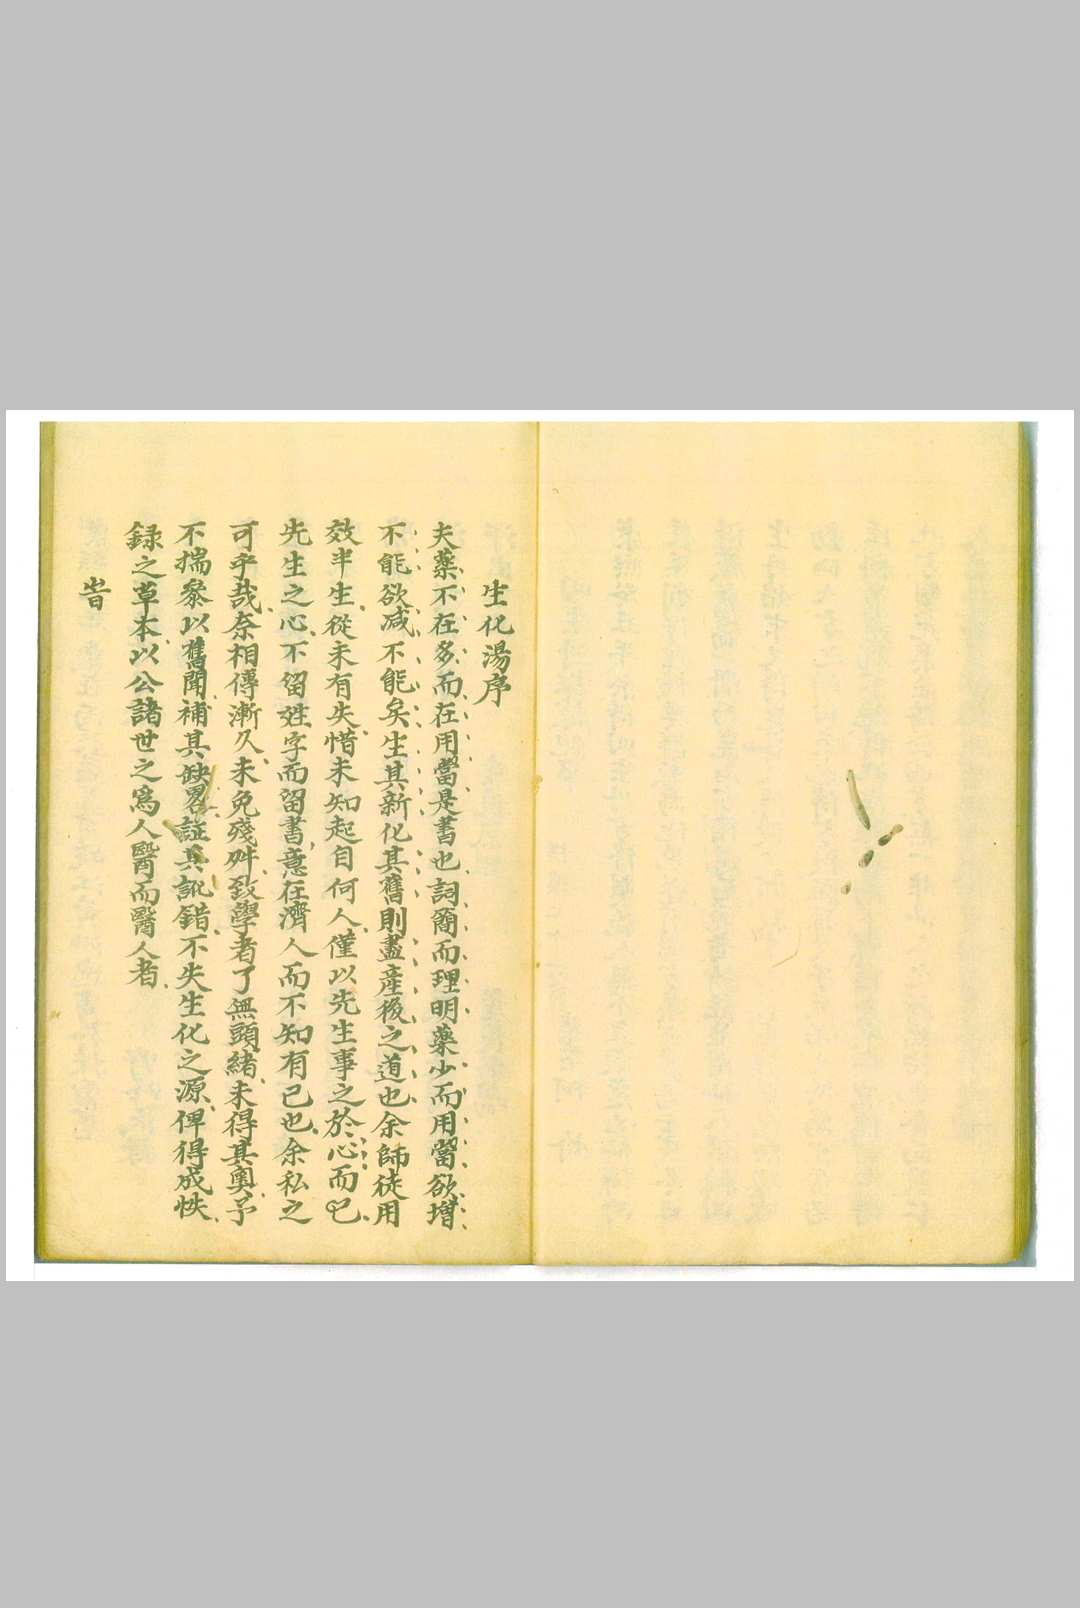 生化湯序
夫藥不在多而在用當是書也詞簡而理明藥少而用當欲增
不能欲减不能矣生其新化其舊則盡產後之道也余師徒用
效半生從未有失惜未知起自何人僅以先生事之於心而已
先生之心不留姓字而留書意在濟人而不知有已也余私之
可乎哉奈相傳漸久未免殘舛致學者了無頭緒未得其奧予
不揣叅以舊聞補其缺畧証其訛錯不失生化之源俾得成帙
録之草本以公諸世之爲人醫而醫人者
旹